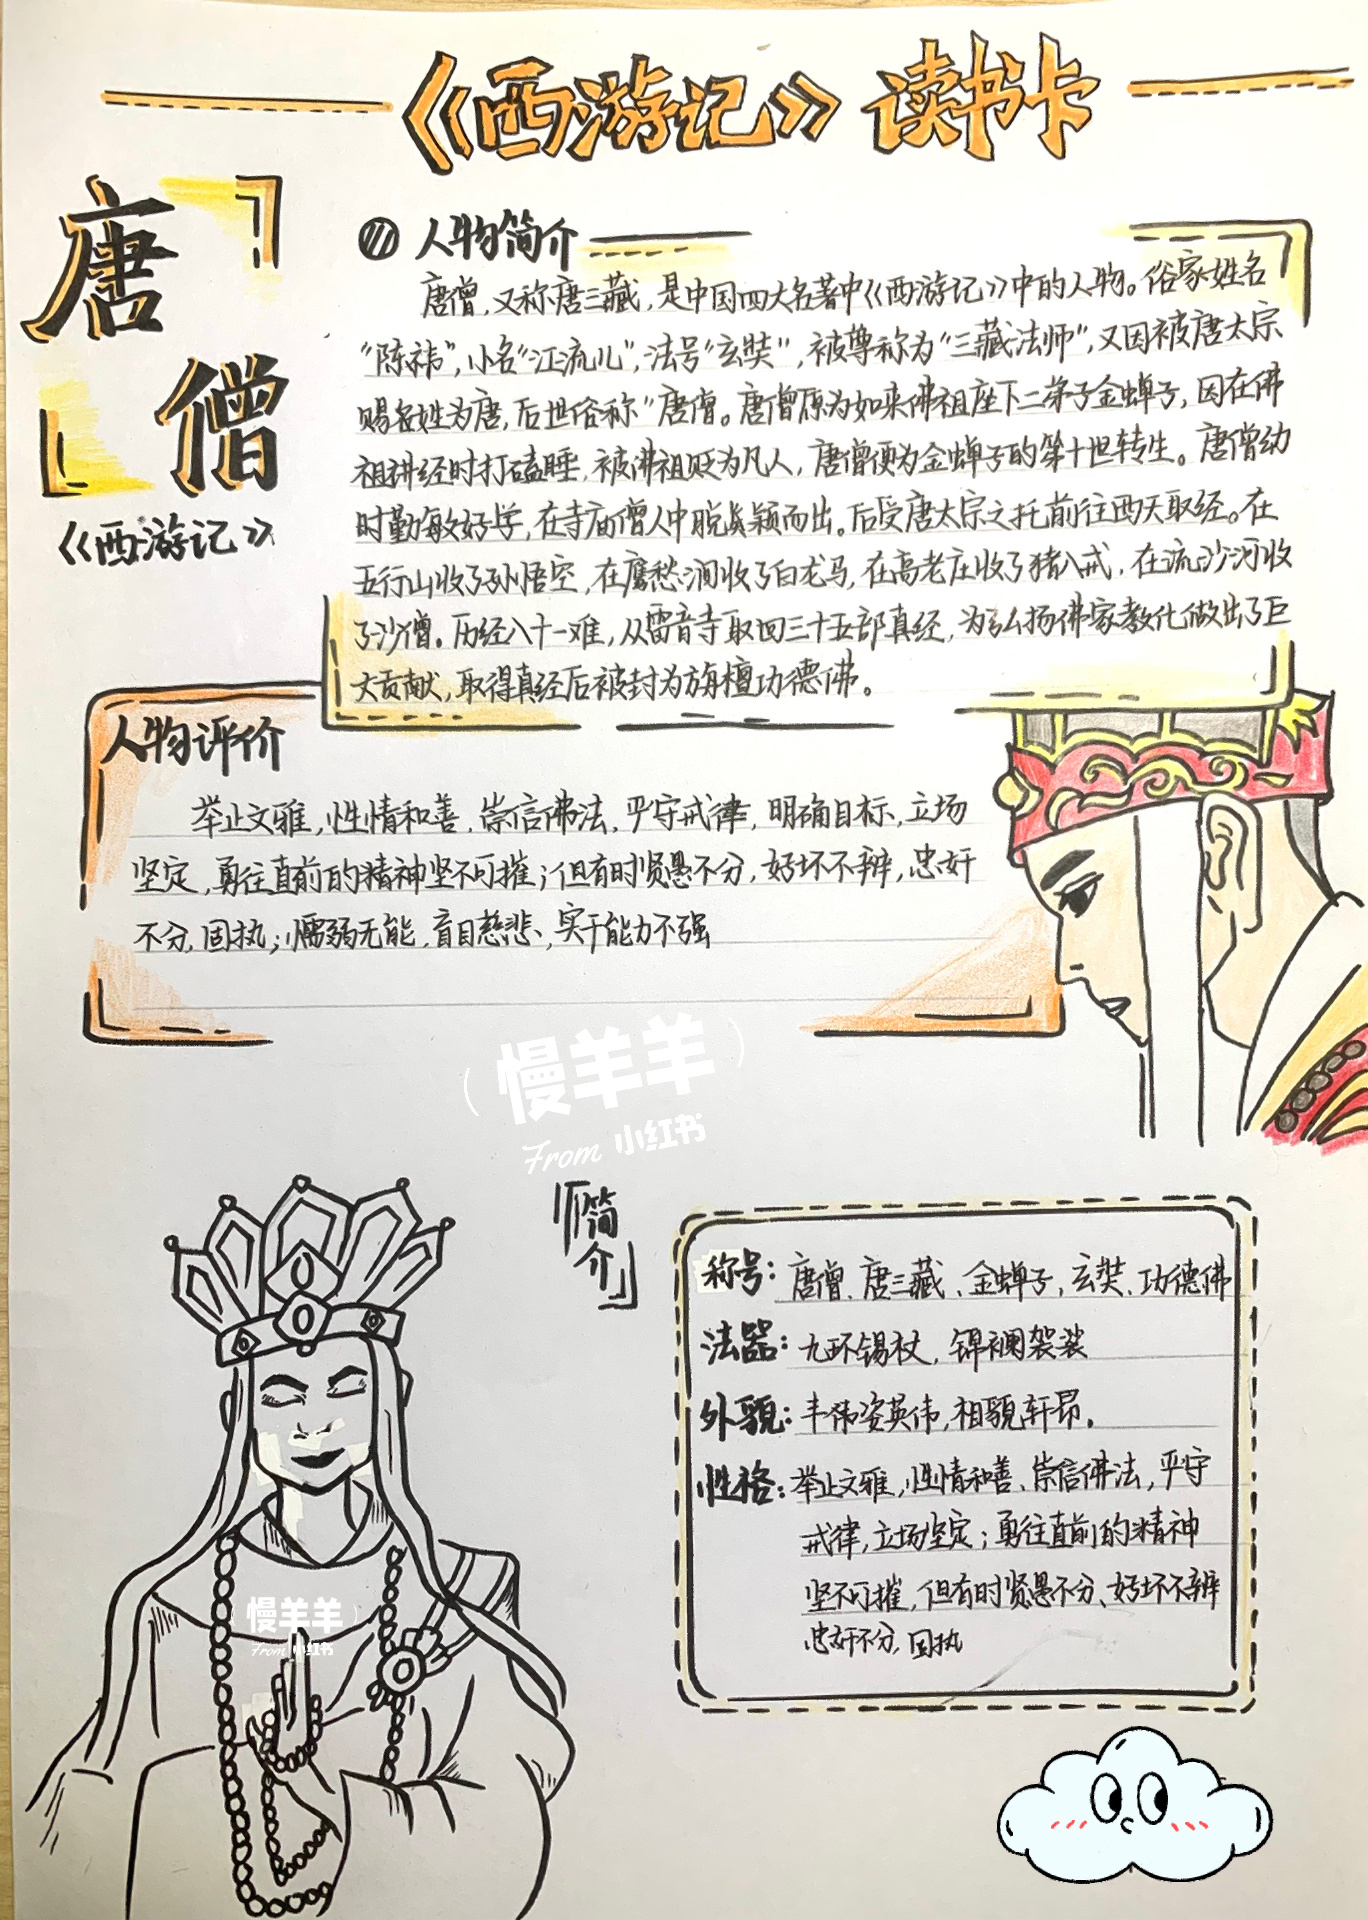 《西游记》读书卡
唐
僧
《西游记》
人物简介
唐僧,又称唐三藏,是中国四大名著中《西游记》中的人物。俗家姓名
“陈祎”,小名“江流儿”,法号“玄奘”,被尊称为“三藏法师”,又因被唐太宗
赐名姓为唐,后世俗称“唐僧。唐僧原为如来佛祖座下二弟子金蝉子,因在佛
祖讲经时打磕睡,被佛祖贬为凡人,唐僧便为金蝉子的第十世转生。唐僧幼
时勤敏好学,在寺庙僧人中脱颖而出。后受唐太宗之托前往西天取经。在
五行山收了孙悟空,在鹰愁涧收了白龙马,在高老庄收了猪八戒,在流沙河收
了沙僧。历经八十一难,从雷音寺取回三十五部真经,为弘扬佛家教化做出了巨
大贡献,取得真经后被封为旃檀功德佛。
人物评价
举止文雅,性情和善,崇信佛法,严守戒律,明确目标,立场
坚定,勇往直前的精神坚不可摧;但有时贤愚不分,好坏不辨,忠奸
不分,固执;懦弱无能,盲目慈悲、实干能力不强
慢羊羊
From 小红书
「简介」
称号:唐僧、唐三藏、金蝉子,玄奘、功德佛
法器:九环锡杖,锦襕袈裟
外貌:丰伟姿英伟,相貌轩昂.
性格:举止文雅,性情和善、崇信佛法,严守
戒律,立场坚定;勇往直前的精神
坚不可摧,但有时贤愚不分、好坏不辨
忠奸不分,固执
慢羊羊
From 小红书